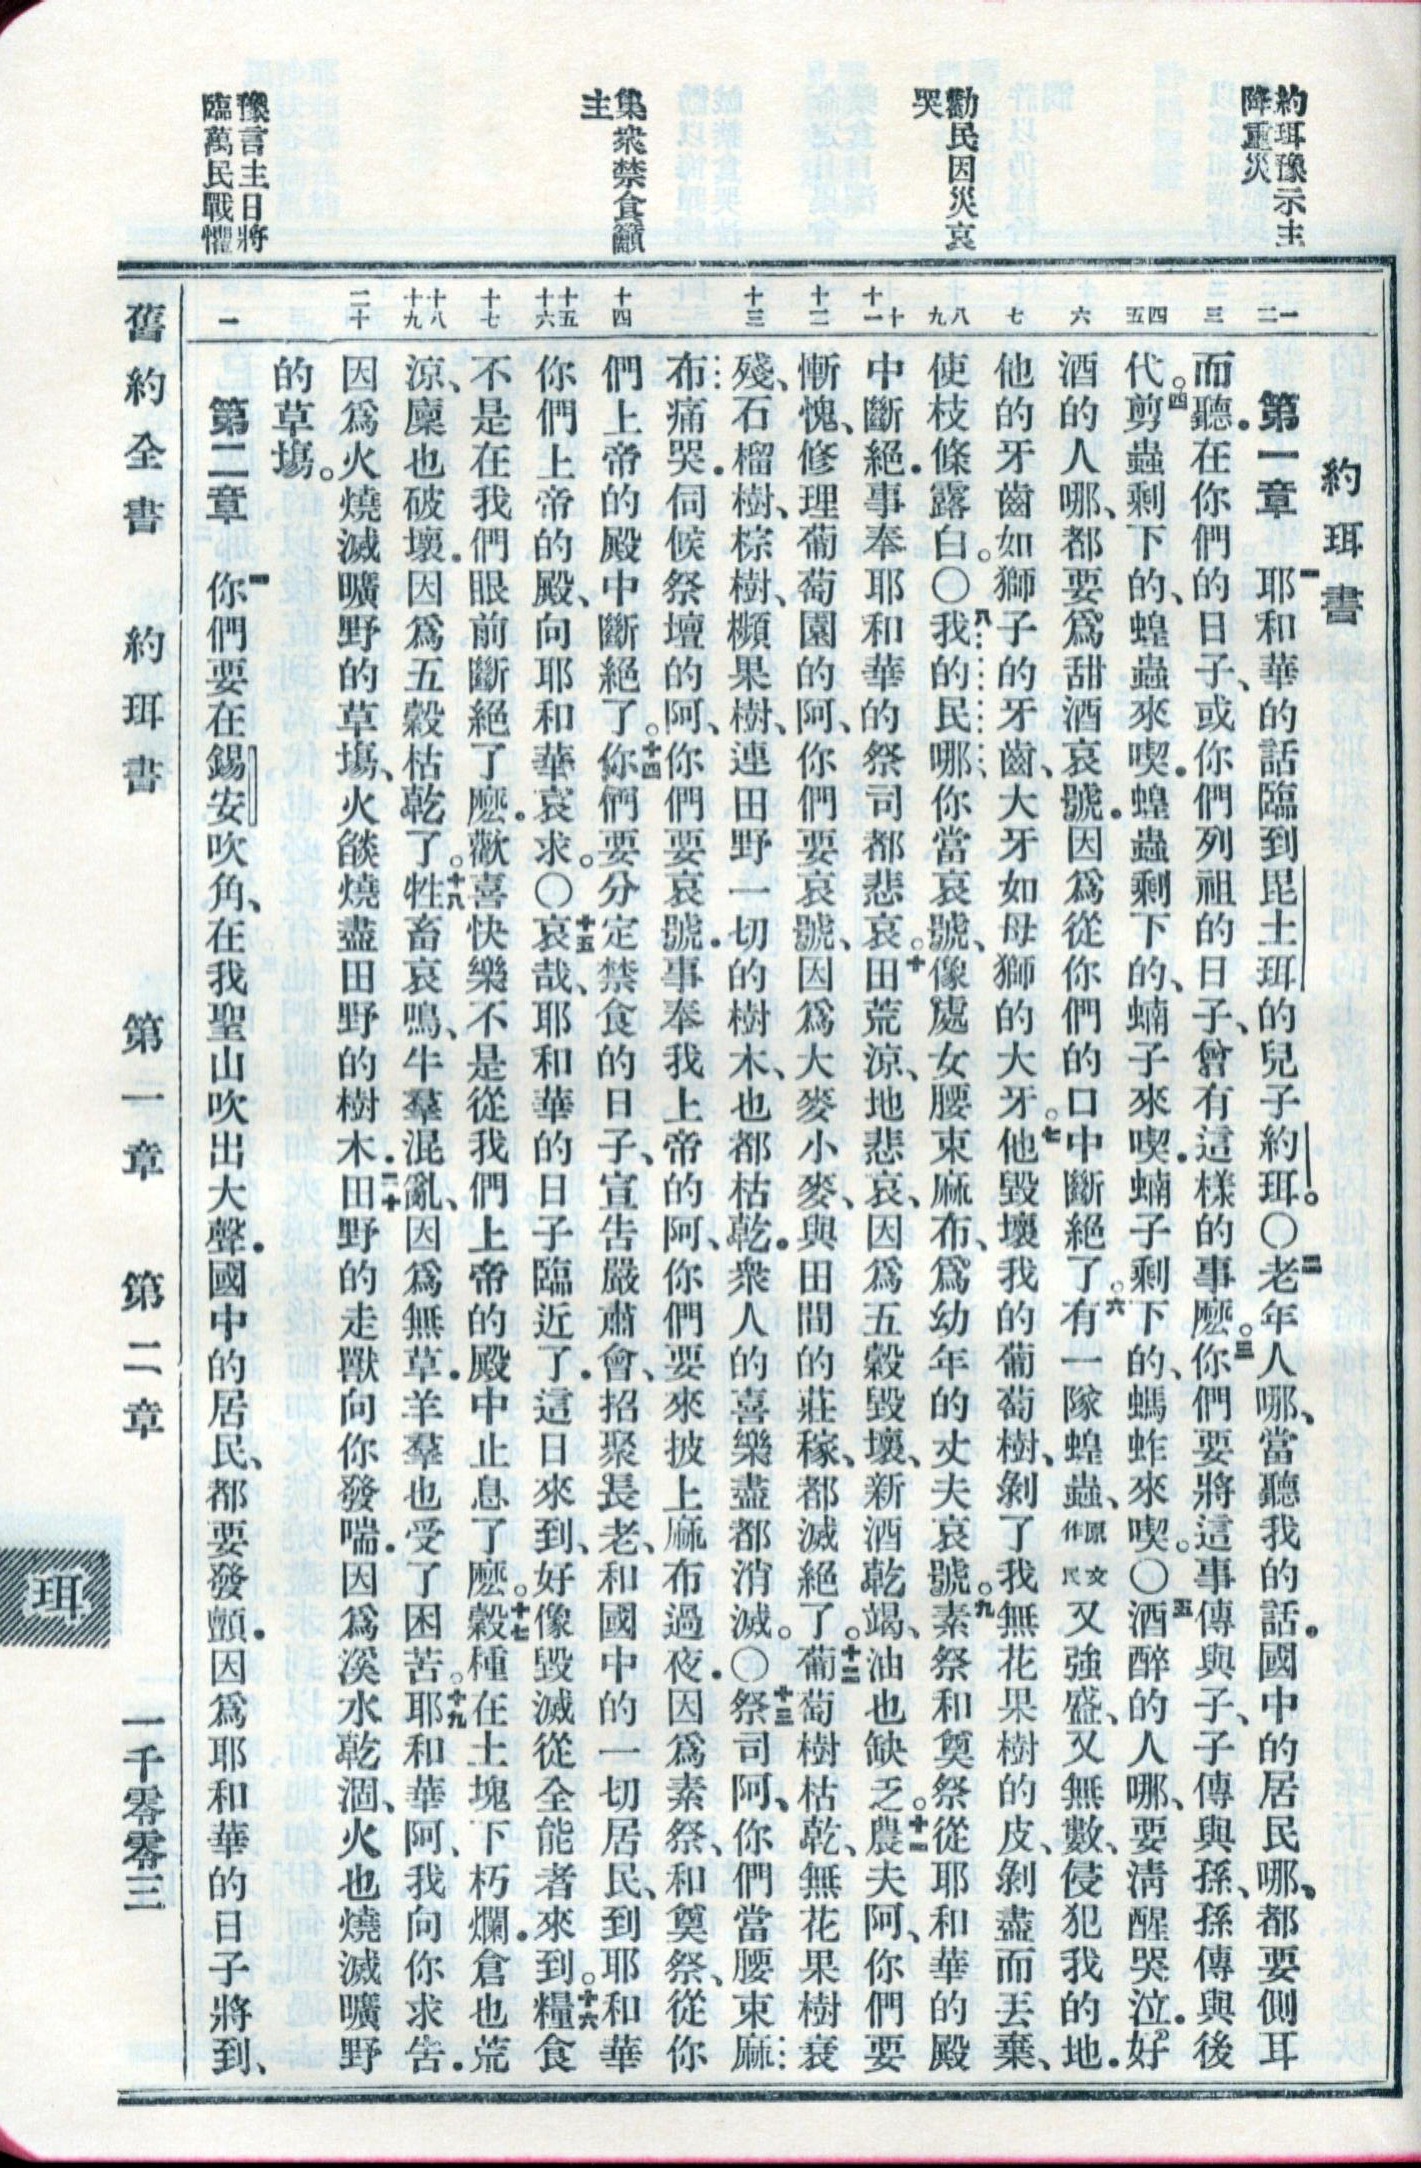 約珥豫示主
降重災
勸民因災哀
哭
集衆禁食籲
主
豫言主日將
臨萬民戰懼
約珥書
一
二
三
四
五
六
七
八
九
十
十一
十二
十三
十四
十五
十六
十七
十八
十九
二十
一
第一章 一耶和華的話臨到毘土珥的兒子約珥。〇二老年人哪、當聽我的話.國中的居民哪、都要側耳
而聽.在你們的日子、或你們列祖的日子、曾有這樣的事麽。三你們要將這事傳與子、子傳與孫、孫傳與後
代。四剪蟲剩下的、蝗蟲來喫.蝗蟲剩下的、蝻子來喫.蝻子剩下的、螞蚱來喫。〇五酒醉的人哪、要淸醒哭泣.好
酒的人哪、都要爲甜酒哀號.因爲從你們的口中斷絕了。六有一隊蝗蟲、原文作民又強盛、又無數、侵犯我的地.
他的牙齒如獅子的牙齒、大牙如母獅的大牙。七他毀壞我的葡萄樹、剝了我無花果樹的皮、剝盡而丟棄、
使枝條露白。〇八我的民哪、你當哀號、像處女腰束麻布、爲幼年的丈夫哀號。九素祭和奠祭從耶和華的殿
中斷絕.事奉耶和華的祭司都悲哀。十田荒涼、地悲哀、因爲五穀毀壞、新酒乾竭、油也缺乏。十一農夫阿、你們要
慚愧、修理葡萄園的阿、你們要哀號、因爲大麥小麥、與田間的莊稼、都滅絕了。十二葡萄樹枯乾、無花果樹衰
殘、石榴樹、棕樹、櫇果樹、連田野一切的樹木、也都枯乾.衆人的喜樂盡都消滅。〇十三祭司阿、你們當腰束麻
布痛哭.伺候祭壇的阿、你們要哀號.事奉我上帝的阿、你們要來披上麻布過夜.因爲素祭、和奠祭、從你
們上帝的殿中斷絕了。十四你們要分定禁食的日子、宣告嚴肅會、招聚長老、和國中的一切居民、到耶和華
你們上帝的殿、向耶和華哀求。〇十五哀哉、耶和華的日子臨近了.這日來到、好像毀滅從全能者來到。十六糧食
不是在我們眼前斷絕了麽.歡喜快樂不是從我們上帝的殿中止息了麽。十七穀種在土塊下朽爛.倉也荒
涼、廩也破壞.因爲五穀枯乾了。十八牲畜哀鳴、牛羣混亂、因爲無草.羊羣也受了困苦。十九耶和華阿、我向你求告.
因爲火燒滅曠野的草塲、火燄燒盡田野的樹木.二十田野的走獸向你發喘.因爲溪水乾涸、火也燒滅曠野
的草塲。
第二章 一你們要在錫安吹角、在我聖山吹出大聲.國中的居民、都要發顫.因爲耶和華的日子將到、
舊約全書 約珥書 第一章 第二章 一千零零三
珥